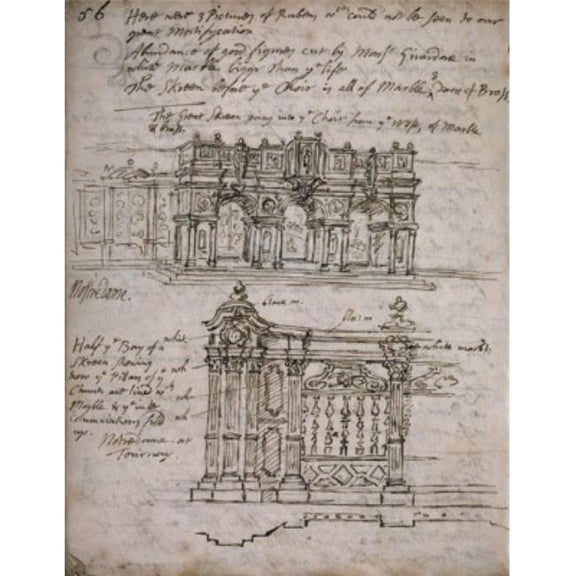 56 Here were 3 Pictures of Rubens wch could not be seen to our
great Mortification
Abundance of good figures cut by Monsr Girardon in
white Marble bigger than ye life
The Skreen before ye Choir is all of Marble, 3 dores of Brass
The Great Skreen going into ye Choir from ye West, of Marble
& Brass.
Notre Dame.
black m.
Half ye Bay of a
Skreen shewing
how ye Pillars of ye
Church are lined wth
Marble & ye
up.
Notredame at
Tournay.
white
white marbl.